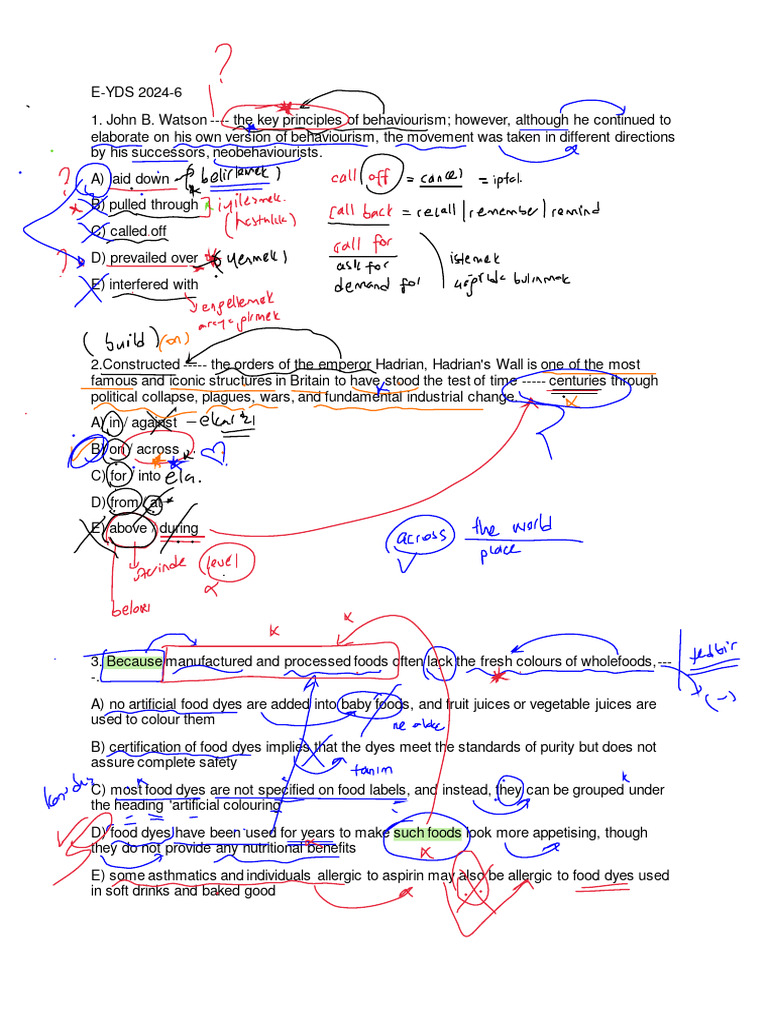 ?
E-YDS 2024-6
1. John B. Watson ---- the key principles of behaviourism; however, although he continued to
elaborate on his own version of behaviourism, the movement was taken in different directions
by his successors, neobehaviourists.
? A) laid down belirlemek)
B) pulled through iyileşmek.
(hastalık)
C) called off
? D) prevailed over yenmek)
E) interfered with
engellemek
call off = cancel = iptal.
call back = recall / remember / remind
call for
ask for
demand for
istemek
bulunmak
(build) (on)
2.Constructed ----- the orders of the emperor Hadrian, Hadrian's Wall is one of the most
famous and iconic structures in Britain to have stood the test of time ----- centuries through
political collapse, plagues, wars, and fundamental industrial change.
A) in / against
B) on / across
C) for / into ela.
D) from / at
E) above / during
üzerinde (level)
below
across the world
place
3. Because manufactured and processed foods often lack the fresh colours of wholefoods, ---
-.
tedbir
(-)
A) no artificial food dyes are added into baby foods, and fruit juices or vegetable juices are
used to colour them
ne alaka
B) certification of food dyes implies that the dyes meet the standards of purity but does not
assure complete safety
tanım
C) most food dyes are not specified on food labels, and instead, they can be grouped under
the heading 'artificial colouring'
D) food dyes have been used for years to make such foods look more appetising, though
they do not provide any nutritional benefits
E) some asthmatics and individuals allergic to aspirin may also be allergic to food dyes used
in soft drinks and baked good